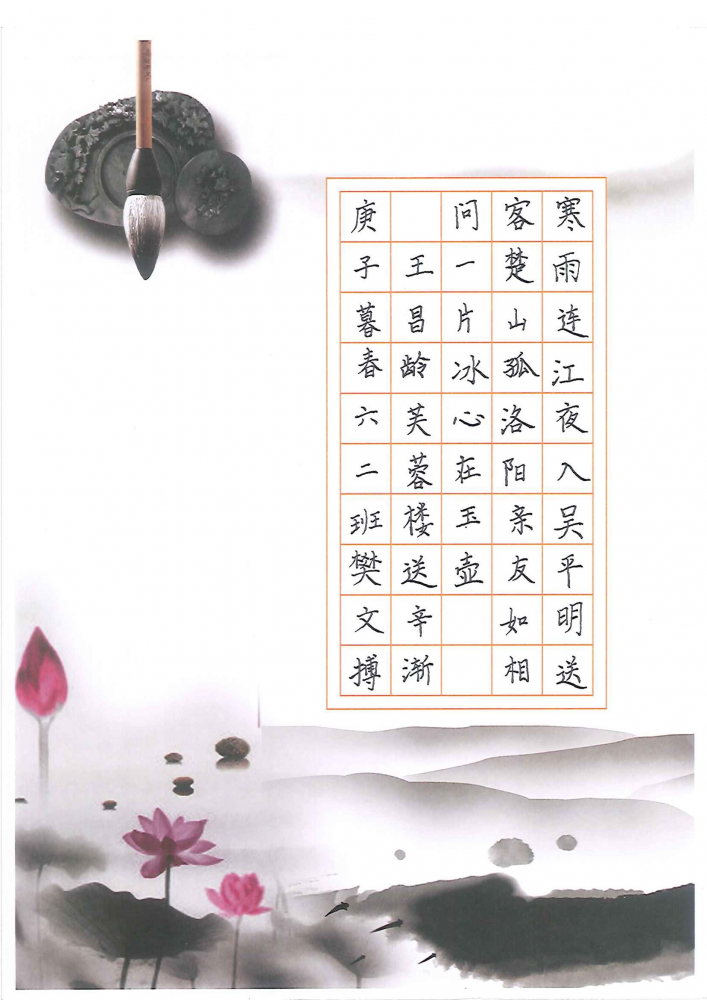 寒雨连江夜入吴平明送
客楚山孤洛阳亲友如相
问一片冰心在玉壶
王昌龄芙蓉楼送辛渐
庚子暮春六二班樊文搏